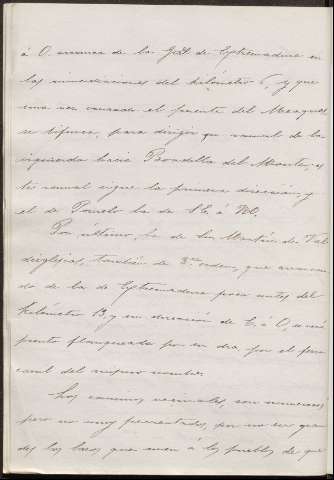 á O. arranca de la Gral. de Extremadura en
las inmediaciones del kilómetro 6, y que
una vez cruzado el puente del
se bifurca, para dirigir un ramal de la
izquierda hacia Boadilla del Monte, es
te ramal sigue la primera dirección, y
el de Pozuelo la de S.E. á N.O.
Por último, la de San Martín de Val
deiglesias, también de 3.er orden, que arrancan
do de la de Extremadura poco antes del
kilómetro 13, y en dirección de E. á O,
flanqueada por el ferro
carril del mismo nombre.
Los caminos vecinales, son numerosos
pero no muy frecuentados, por no ser gran
des los lazos que unen á los pueblos de que